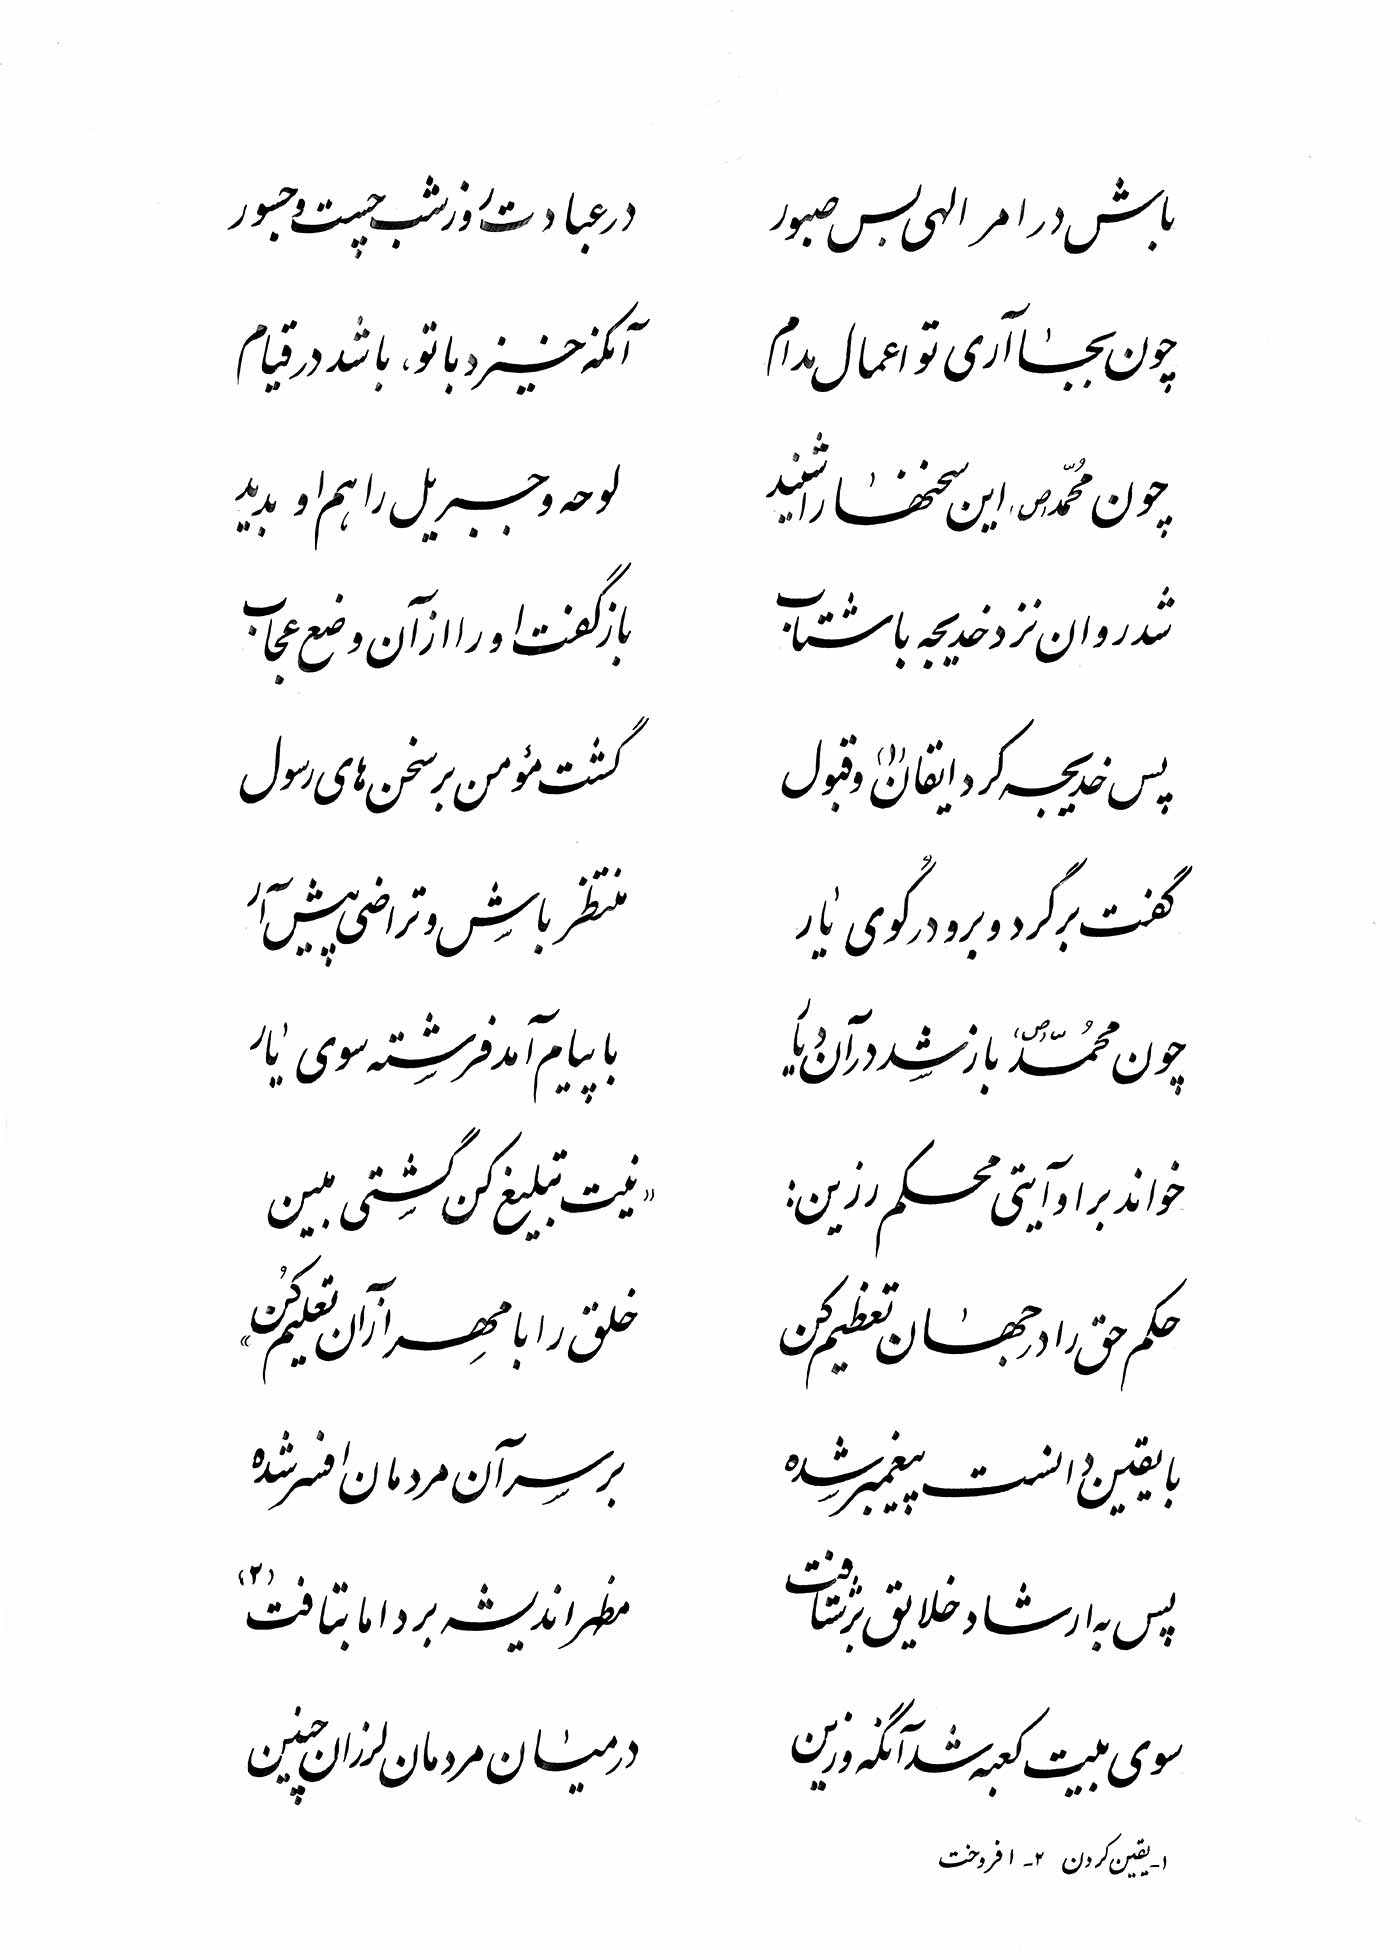 باش در امر الهی بس صبور    در عبادت روز شب چست و جسور
چون بجا آری تو اعمال مدام    آنکه خیزد با تو، باشد در قیام
چون محمّد(ص) این سخنها را شنید    لوحه و جبریل را هم او بدید
شد روان نزد خدیجه با شتاب    بازگفت او را از آن وضع عجاب
پس خدیجه کرد ایقان(۱) و قبول    گشت مؤمن بر سخن های رسول
گفت برگرد و برو در گوی یار    منتظر باش و تراضی پیش آر
چون محمّد(ص) باز شد در آن دیار    با پیام آمد فرشته سوی یار
خواند بر او آیتی محکم رزین:    «نیت تبلیغ کن گشتی مبین
حکم حق را در جهان تعظیم کن    خلق را با مهر از آن تعلیم کن»
با یقین دانست پیغمبر شده    بر سر آن مردمان افسر شده
پس به ارشاد خلایق بر شتافت    مظهر اندیشه برد اما بتافت(۲)
سوی بیت کعبه شد آنگه وزین    در میان مردمان لرزان چنین
۱- یقین کردن  ۲- افروخت